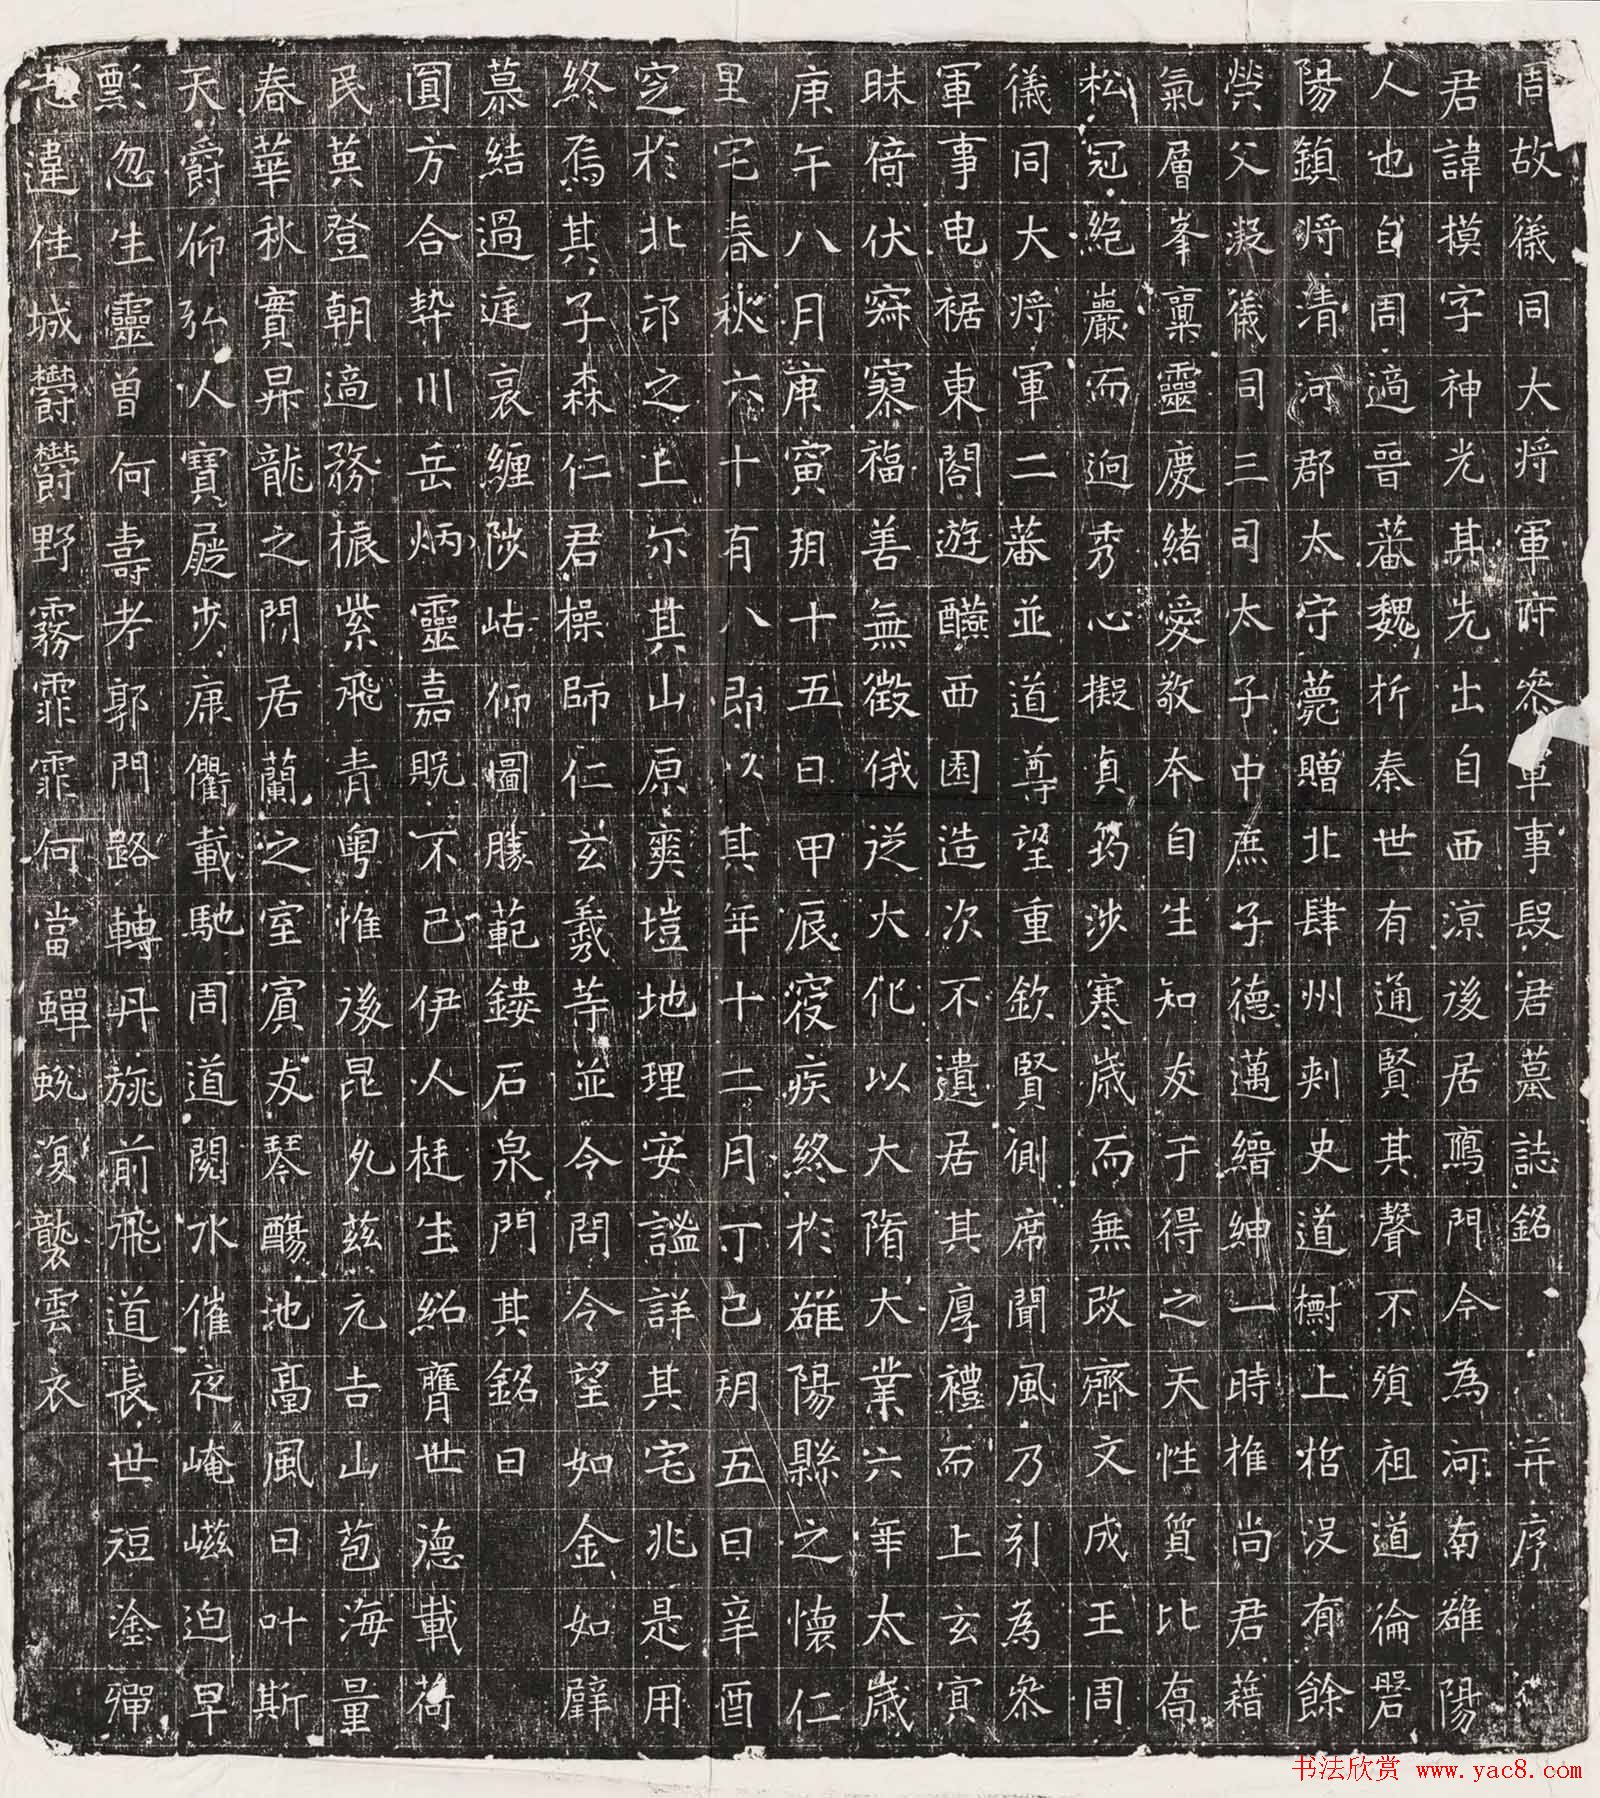 周故儀同大將軍府參軍事段君墓誌銘 并序
君諱摸字神光其先出自西涼後居鴈門今為河南雒陽
人也自周適晉蕃魏析秦世有通賢其聲不殞祖道倫磐
陽鎮將清河郡太守薨贈北肆州刺史道樹上栢沒有餘
榮父凝儀同三司太子中庶子德邁縉紳一時惟尚君藉
氣層峯稟靈慶緒愛敬本自生知友于得之天性質比喬
松冠絕巖而迥秀心擬貞筠涉寒歲而無改齊文成王周
儀同大將軍二蕃並道尊望重欽賢側席聞風乃引為參
軍事曳裾東閣遊醼西園造次不遺居其厚禮而上玄冥
昧倚伏寂寥福善無徵俄從大化以大隋大業六年太歲
庚午八月庚寅朔十五日甲辰寢疾終於雒陽縣之懷仁
里宅春秋六十有八即以其年十二月丁巳朔五日辛酉
窆於北邙之上尒其山原爽塏地理安謐詳其宅兆是用
終焉其子森仁君操師仁玄羲等並令問令望如金如璧
慕結過庭哀纏陟岵仰圖勝範鏤石泉門其銘曰
圓方合埶川岳炳靈嘉貺不已伊人挺生紹膺世德載荷
民英登朝適務振紫飛青粵惟後昆允茲元吉山苞海量
春華秋實昇龍之門居蘭之室賓友琴酶池臺風日叶斯
天爵仰弘人寶屣步康衢載馳周道閱水催夜崦嵫迫早
斲忽生靈曾何壽考郭門路轉丹旐前飛道長世短塗殫
志違佳城鬱鬱野霧霏霏何當蟬蛻復襲雲衣
书法欣赏 www.yac8.com